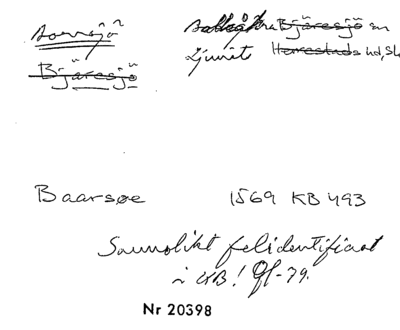 Sorrsjö
Bjäresjö
Bjäresjö sn
Ljunits Herrestads hd, Sk
Baarsøe 1569 KB 493
Sannolikt felidentifierat
i KB! Gf-79.
Nr 20398